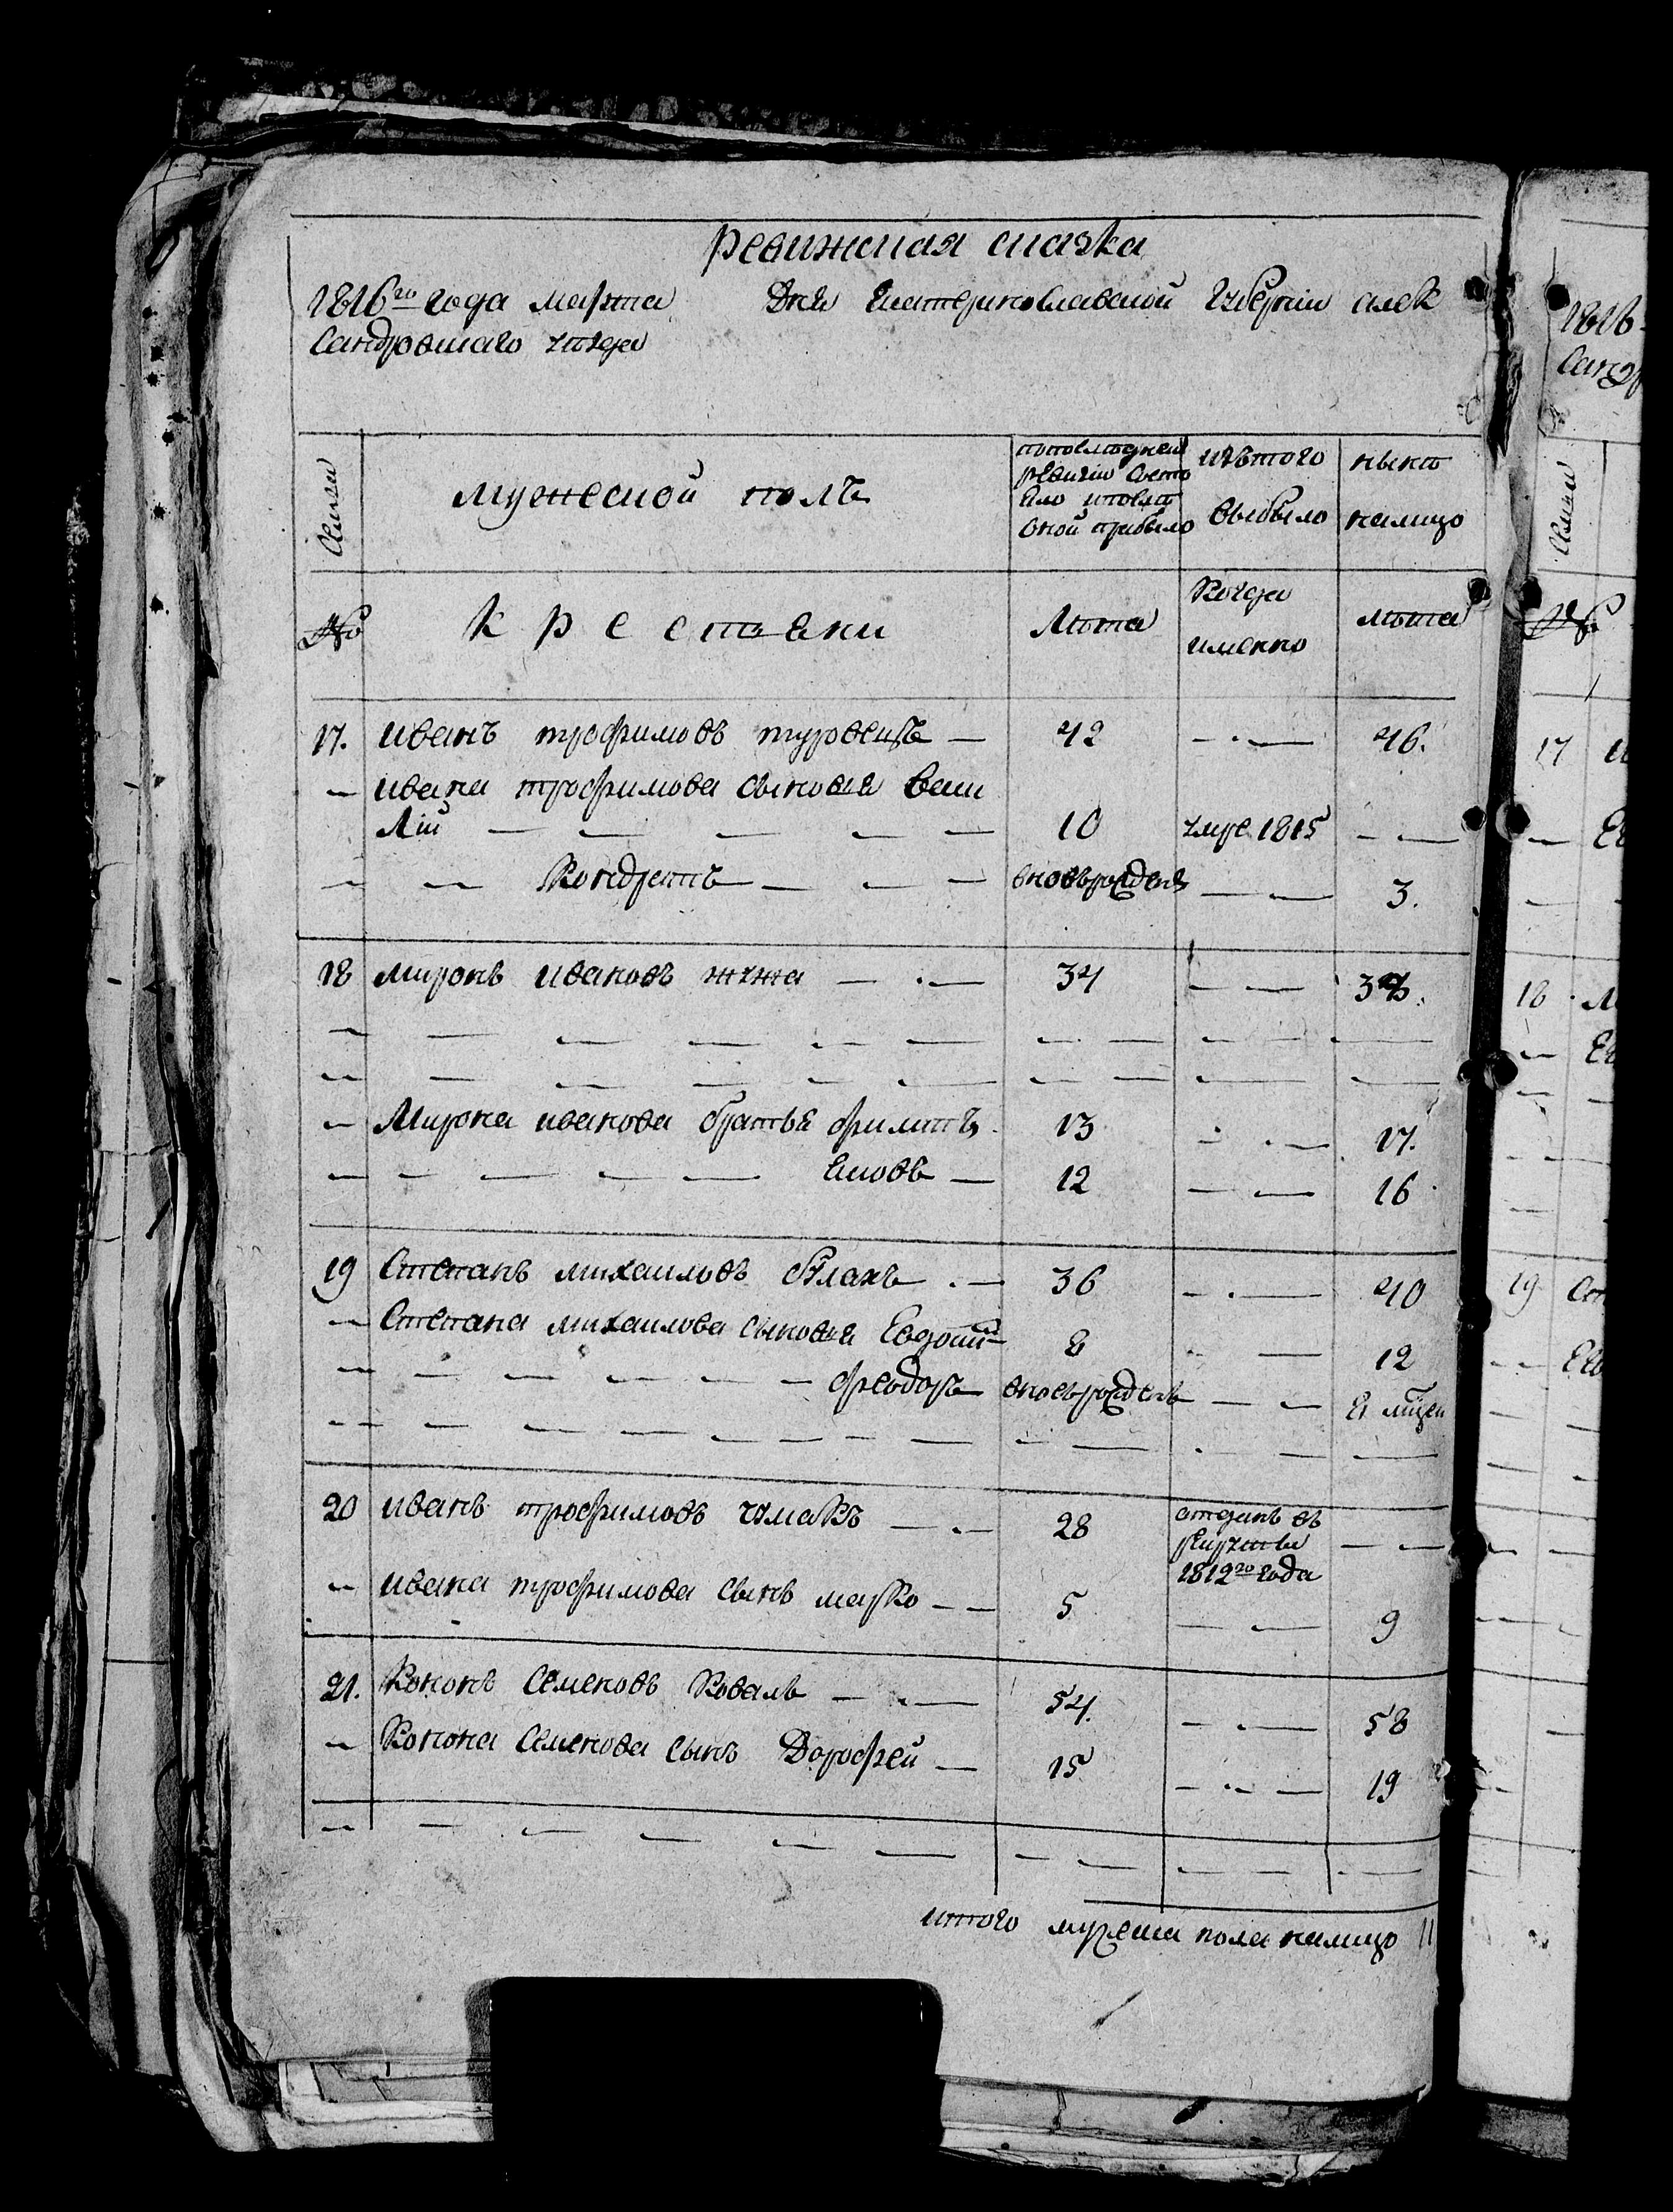 ревижская сказка
1816го года марта дня Екатеринославской Губернии алек
сандровскаго уезда
семьи
мужеской полъ
попоследней
ревизии состо
яло ипосля
оной прибыло
изътого
выбыло
ныне
налицо
№
крестьяни
Лета
Когда
именно
лета
17. иванъ трофимовъ туровецъ — 42 — 46.
— ивана трофимова сыновья васи
лій — 10 умре 1815 —
— Кондратъ — вновьрожденъ — 3.
18 миронъ ивановъ жужа — 34 — 38.
— Мирона иванова братья филипъ 13 — 17.
— — 12 — 16
19 Степанъ михаиловъ — 36 — 40
— Степана михаилова сыновья 8 — 12
— феодоръ вновьрожденъ —
20 иванъ трофимовъ чумакъ — 28 отданъ въ
рекруты
1812го года —
— ивана трофимова сынъ марко — 5 — 9
21. Кононъ Семеновъ Коваль — 54. — 58
— Конона Семенова сынъ Дорофей — 15 — 19
итого мужеска пола налицо 11
1816
Санд
семьи
№
17 И
— Ег
18 М
— Ег
19 Ст
— Ег